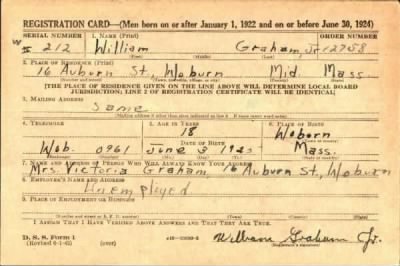 REGISTRATION CARD—(Men born on or after January 1, 1922 and on or before June 30, 1924)
SERIAL NUMBER 1. NAME (Print) ORDER NUMBER
W 212 William Graham, Jr 12758
(First) (Middle) (Last)
2. PLACE OF RESIDENCE (Print)
16 Auburn St., Woburn Mid. Mass.
(Number and street) (Town, township, village, or city) (County) (State)
[THE PLACE OF RESIDENCE GIVEN ON THE LINE ABOVE WILL DETERMINE LOCAL BOARD
JURISDICTION; LINE 2 OF REGISTRATION CERTIFICATE WILL BE IDENTICAL]
3. MAILING ADDRESS
Same
(Mailing address if other than place indicated on line 2. If same insert word same)
4. TELEPHONE 5. AGE IN YEARS 6. PLACE OF BIRTH
18 Woburn
DATE OF BIRTH (Town or county)
Wob. 0961 June 3 Mass.
(Exchange) (Number) (Mo.) (Day) (Yr.) (State or country)
7. NAME AND ADDRESS OF PERSON WHO WILL ALWAYS KNOW YOUR ADDRESS
Mrs. Victoria Graham 16 Auburn St., Woburn
8. EMPLOYER'S NAME AND ADDRESS
Unemployed
9. PLACE OF EMPLOYMENT OR BUSINESS
(Number and street or R. F. D. number) (Town) (County) (State)
I AFFIRM THAT I HAVE VERIFIED ABOVE ANSWERS AND THAT THEY ARE TRUE.
D. S. S. Form 1
(Revised 6-1-42) William Graham Jr.
(Registrant's signature)